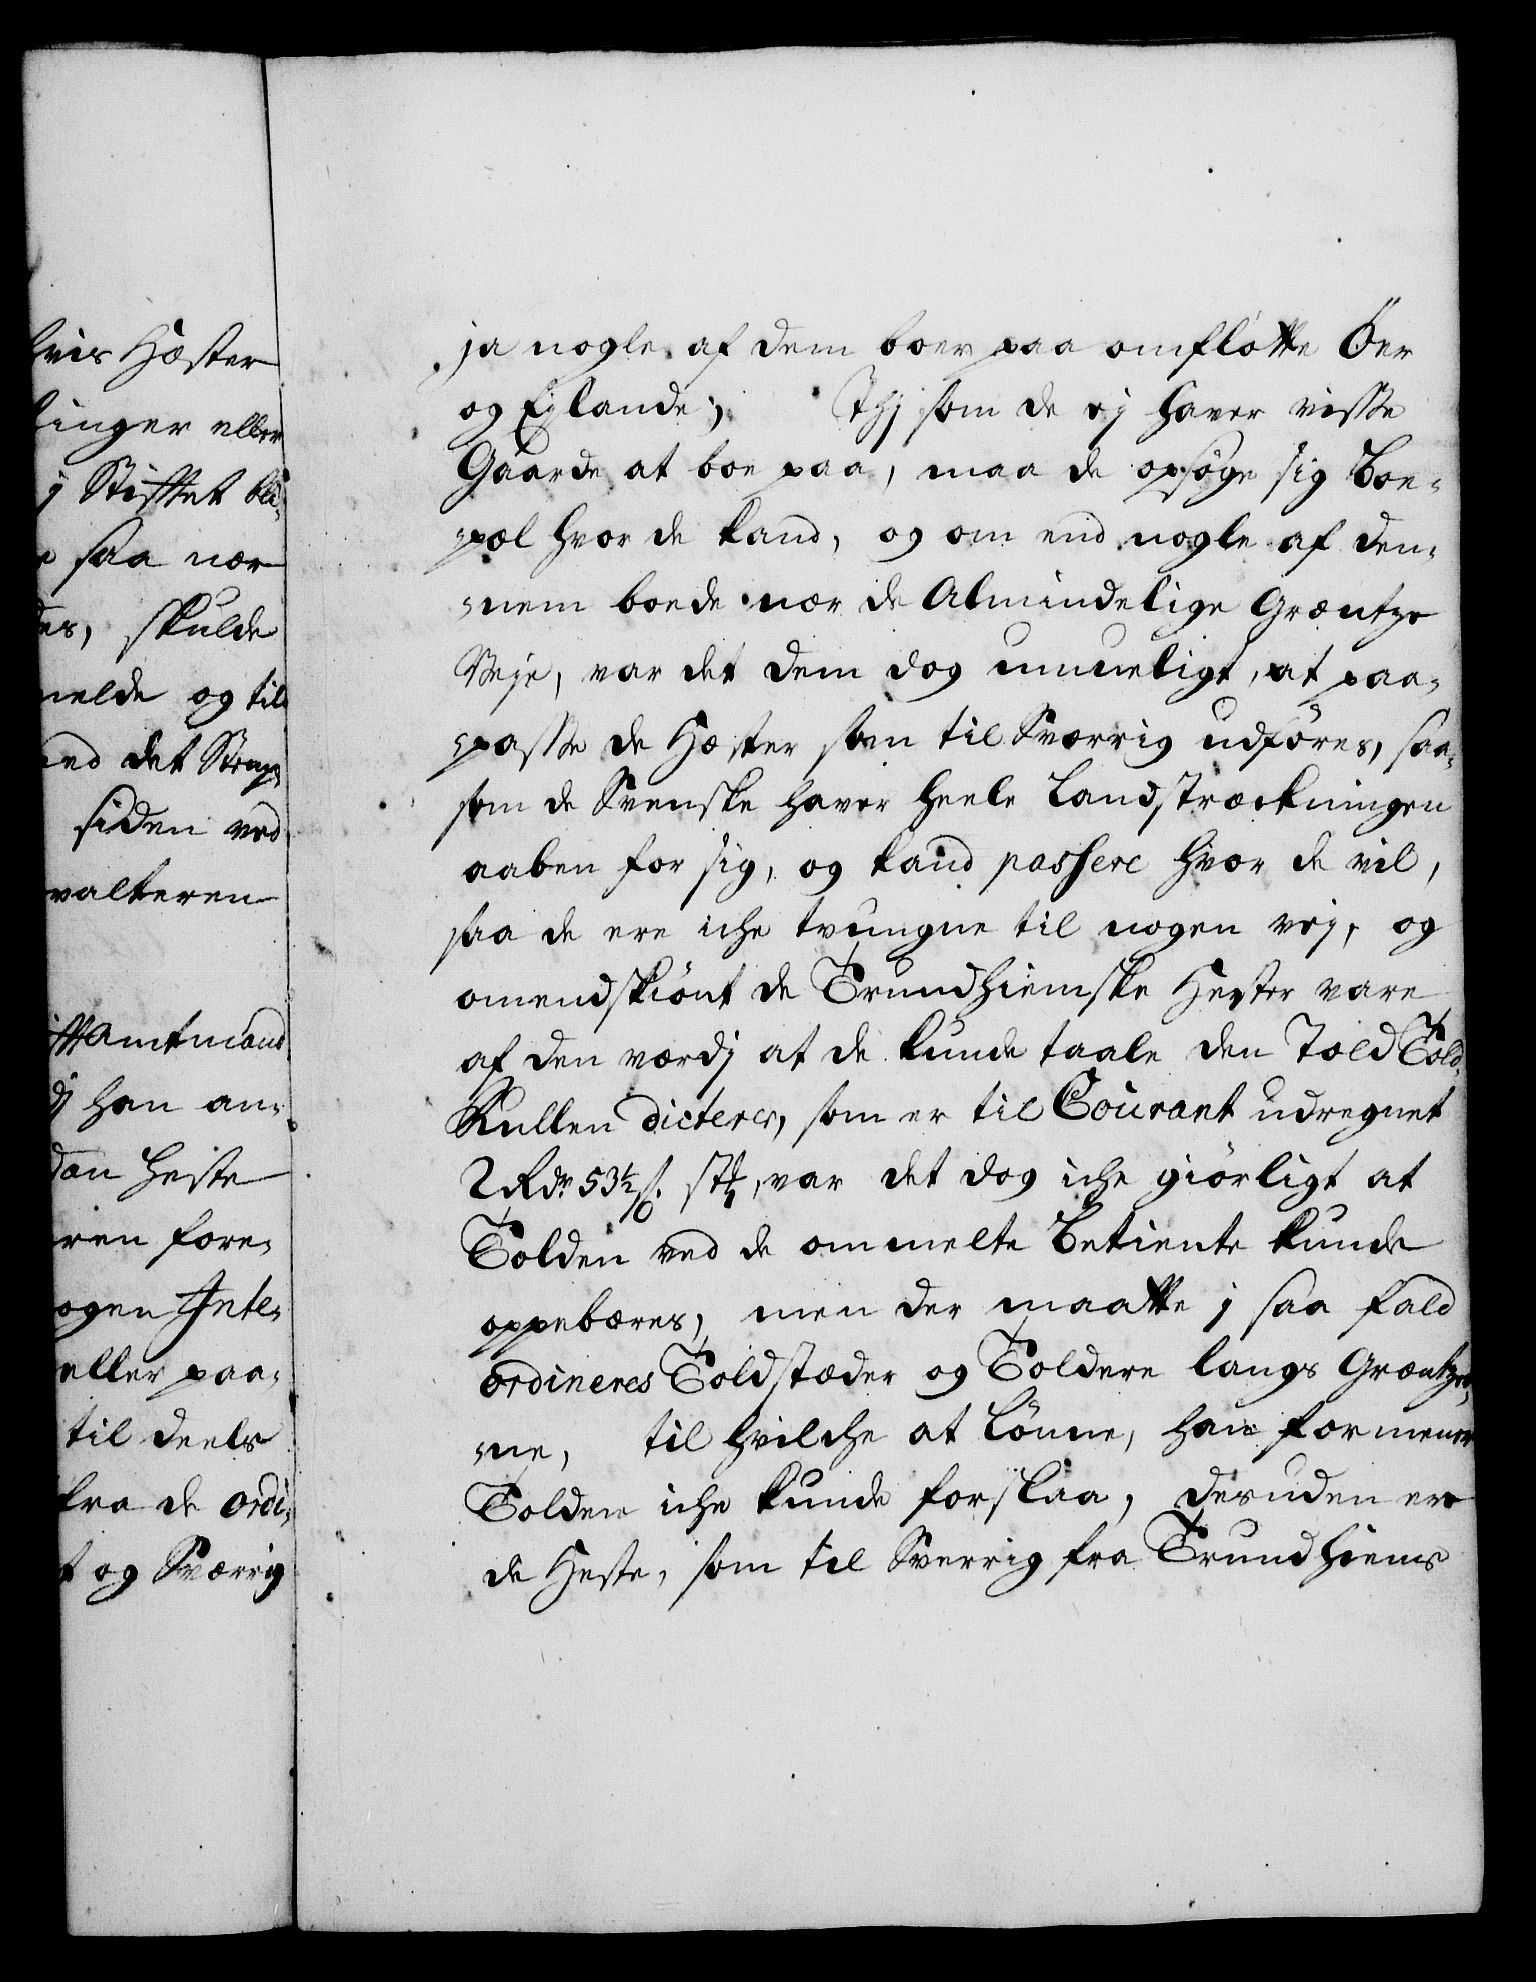 vis Hæster
inger eller
j Stifftet bli¬
saa nær
des, skulde
melde og til
det Strax
siden ved
valteren
Amtmand
dj han an¬
dan Heste
ren fore¬
ogen Inte¬
eller paa¬
til deels
fra de ordi¬
t og Sværrig
ja nogle af dem boer paa omfløtte Öer
og Ejlande; Thj som de ej haver visse
Gaarde at boe paa, maa de opsöge sig Boe¬
pæl hvor de kand, og om end nogle af den¬
nem boede nær de Almindelige Græntze
Veje, var det dem dog umueligt, at paa¬
passe de Hæster som til Sværrig udföres, saa¬
som de Svenske haver heele Landstræckningen
aaben for sig, og kand passere hvor de vil,
saa de ere iche tvungne til nogen vej, og
omendskiönt de Trundhiemske Hester vare
af den værdj at de kunde taale den Told Told¬
Rullen dicteres, som er til Courant udregnet
2 Rdr 53½ s. st, var det dog iche giörligt at
Tolden ved de ommelte Betiente kunde
oppebæres, men der maatte j saa fald
ordineres Toldstæder og Toldere langs Græntzer¬
ne, til hvilche at lönne, han formener
Tolden iche kunde forslaa, desuden ere
de Heste, som til Sverrig fra Trundhiems